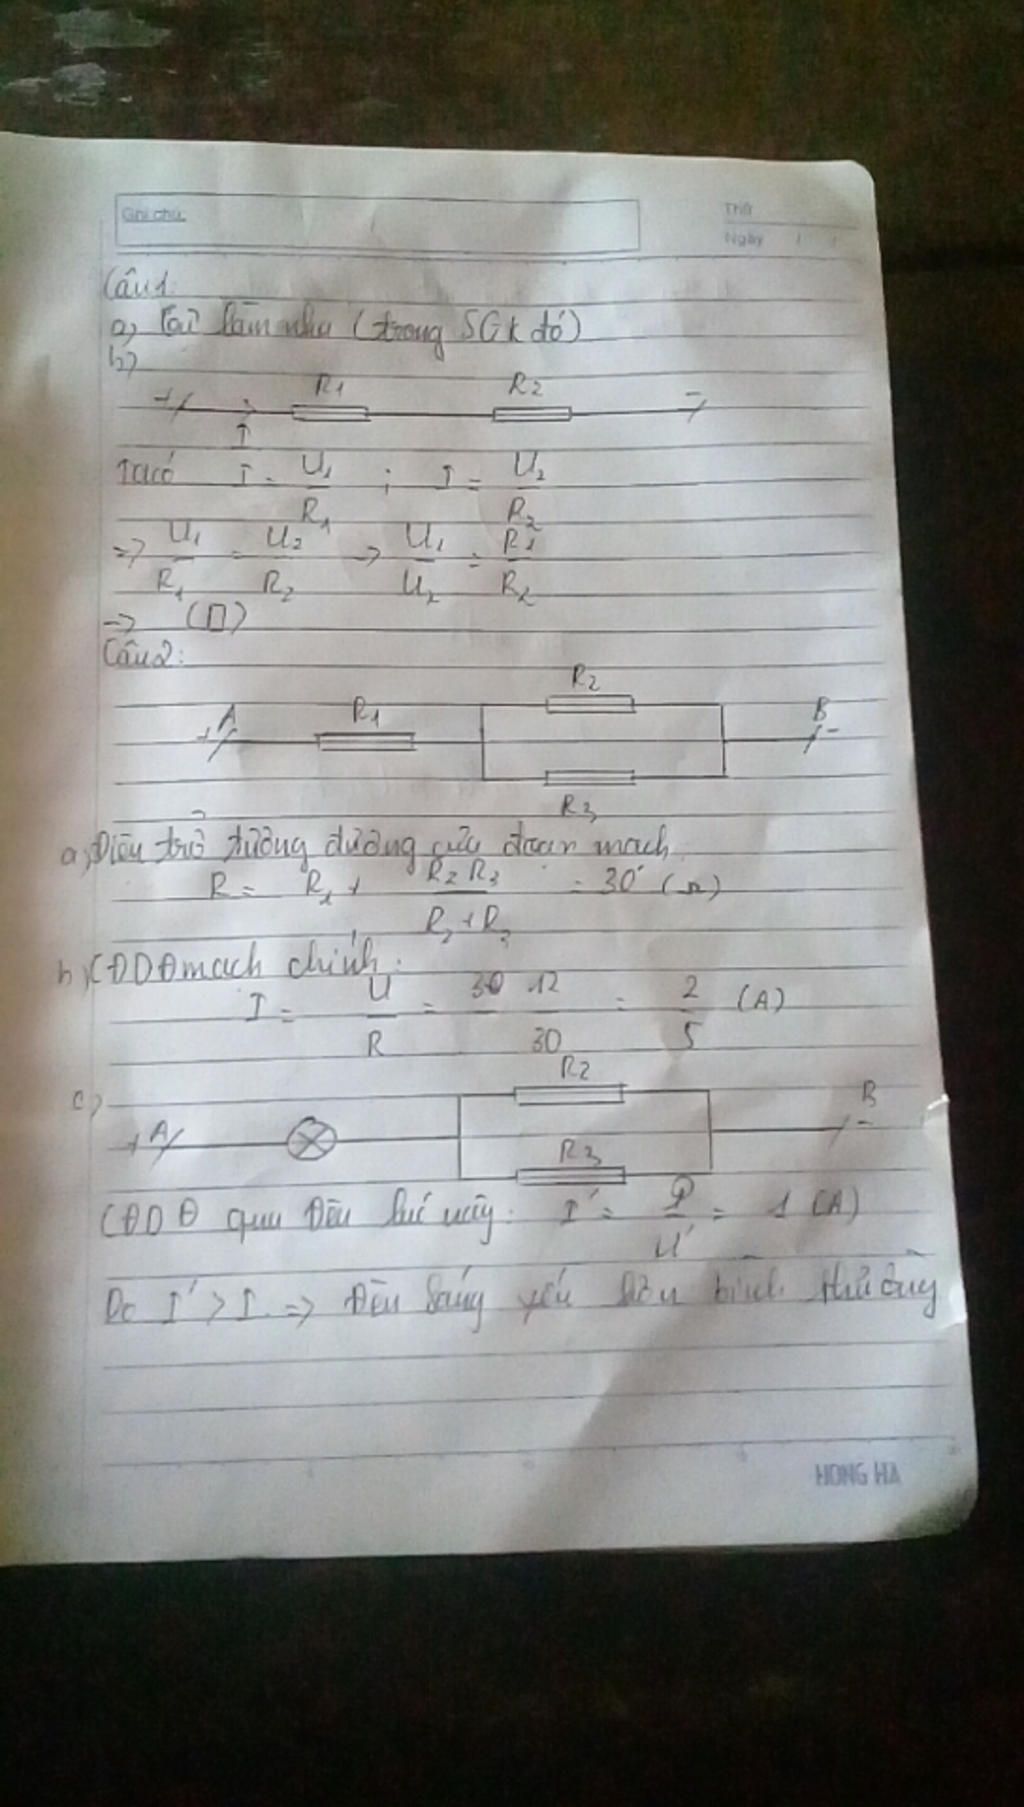 Ghi chú:
Thứ
Ngày / /
Câu 1:
a) Tự làm nha (trong SGK đó)
b)
R1 R2
+ -
I
Ta có I = U1/R1 ; I = U2/R2
=> U1/R1 = U2/R2 -> U1/U2 = R1/R2
-> (□)
Câu 2:
R2
A R1 B
+ -
R3
a, Điện trở tương đương của đoạn mạch
R = R1 + R2 R3/R2 + R3 = 30 (Ω)
b, CĐDĐ mạch chính:
I = U/R = 12/30 = 2/5 (A)
c)
R2
+ A B -
R3
CĐDĐ qua Đèn lúc này: I' = P/U' = 1 (A)
Do I' > I => Đèn sáng yếu hơn bình thường
HONG HA